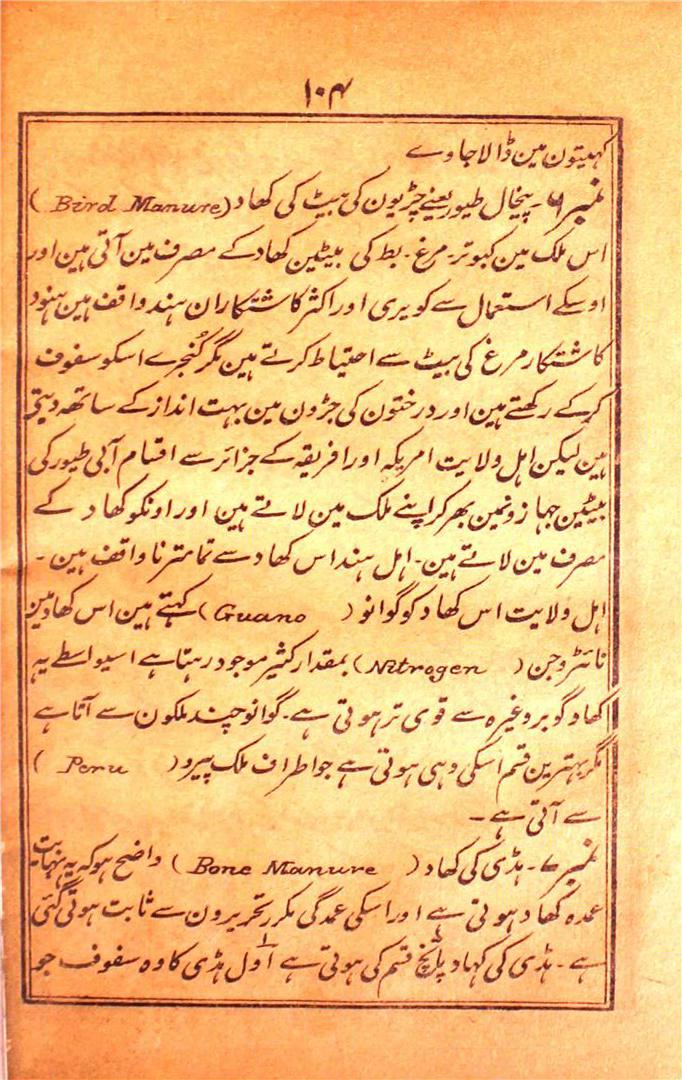 ۱۰۴
کہیتون مین ڈالا جاوے
نمبر ۶۔ پیخال طیور یعنے چڑیون کی بیٹ کی کھاد (Bird Manure)
اس ملک مین کبوتر۔ مرغ۔ بط کی بیٹین کھاد کے مصرف مین آتی ہین اور
اوسکے استعمال سے کویری اور اکثر کاشتکاران ہند واقف ہین ہنود
کاشتکار مرغ کی بیٹ سے احتیاط کرتے ہین مگر کُنجرے اسکو سفوف
کرکے رکھتے ہین اور درختون کی جڑون مین بہت انداز کے ساتھ دیتے
ہین لیکن اہل ولایت امریکہ اور افریقہ کے جزائر سے اقسام آبی طیور کی
بیٹین جہازونمین بھر کر اپنے ملک مین لاتے ہین اور اونکو کھاد کے
مصرف مین لاتے ہین۔ اہل ہند اس کھاد سے تمامتر ناواقف ہین۔
اہل ولایت اس کھاد کو گوانو (Guano) کہتے ہین اس کھاد مین
نائٹروجن (Nitrogen) بمقدار کثیر موجود رہتا ہے اسیواسطے یہ
کھاد گوبر وغیرہ سے قوی تر ہوتی ہے۔ گوانو چند ملکون سے آتا ہے
مگر بہترین قسم اسکی وہی ہوتی ہے جو اطراف ملک پیرو (Peru)
سے آتی ہے۔
نمبر ۷۔ ہڈی کی کھاد (Bone Manure) واضح ہو کہ یہ نہایت
عمدہ کھاد ہوتی ہے اور اسکی عمدگی مکرر تحریرون سے ثابت ہوتی گئی
ہے۔ ہڈی کی کہاد پانچ قسم کی ہوتی ہے اول ہڈی کا وہ سفوف جو